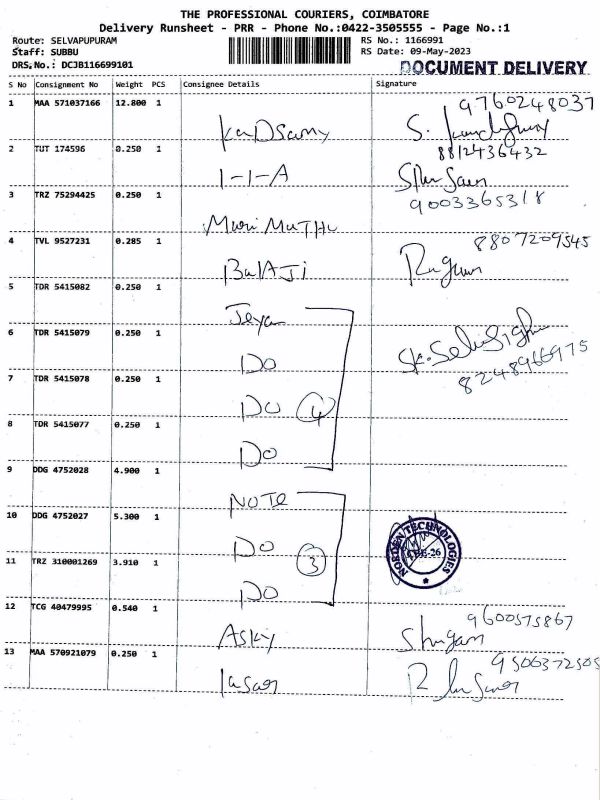 THE PROFESSIONAL COURIERS, COIMBATORE
Delivery Runsheet - PRR - Phone No.:0422-3505555 - Page No.:1
Route: SELVAPUPURAM RS No.: 1166991
Staff: SUBBU RS Date: 09-May-2023
DRS.No.: DCJB116699101 DOCUMENT DELIVERY
S No Consignment No Weight PCS Consignee Details Signature
1 MAA 571037166 12.800 1 9760248037
KaDSamy S.
2 TUT 174596 0.250 1 8812436432
1-1-A
3 TRZ 75294425 0.250 1 9003365318
Muri MuTHu
4 TVL 9527231 0.285 1 8807209545
BalAJi
5 TDR 5415082 0.250 1
Jeya
6 TDR 5415079 0.250 1
Do 8248966975
7 TDR 5415078 0.250 1
Do 4
8 TDR 5415077 0.250 1
Do
9 DDG 4752028 4.900 1
NOTE
10 DDG 4752027 5.300 1
Do NORDEN TECHNOLOGIES CBE-26
11 TRZ 310001269 3.910 1 3
Do
12 TCG 40479995 0.540 1 9600575867
Asky
13 MAA 570921079 0.250 1 9506372505